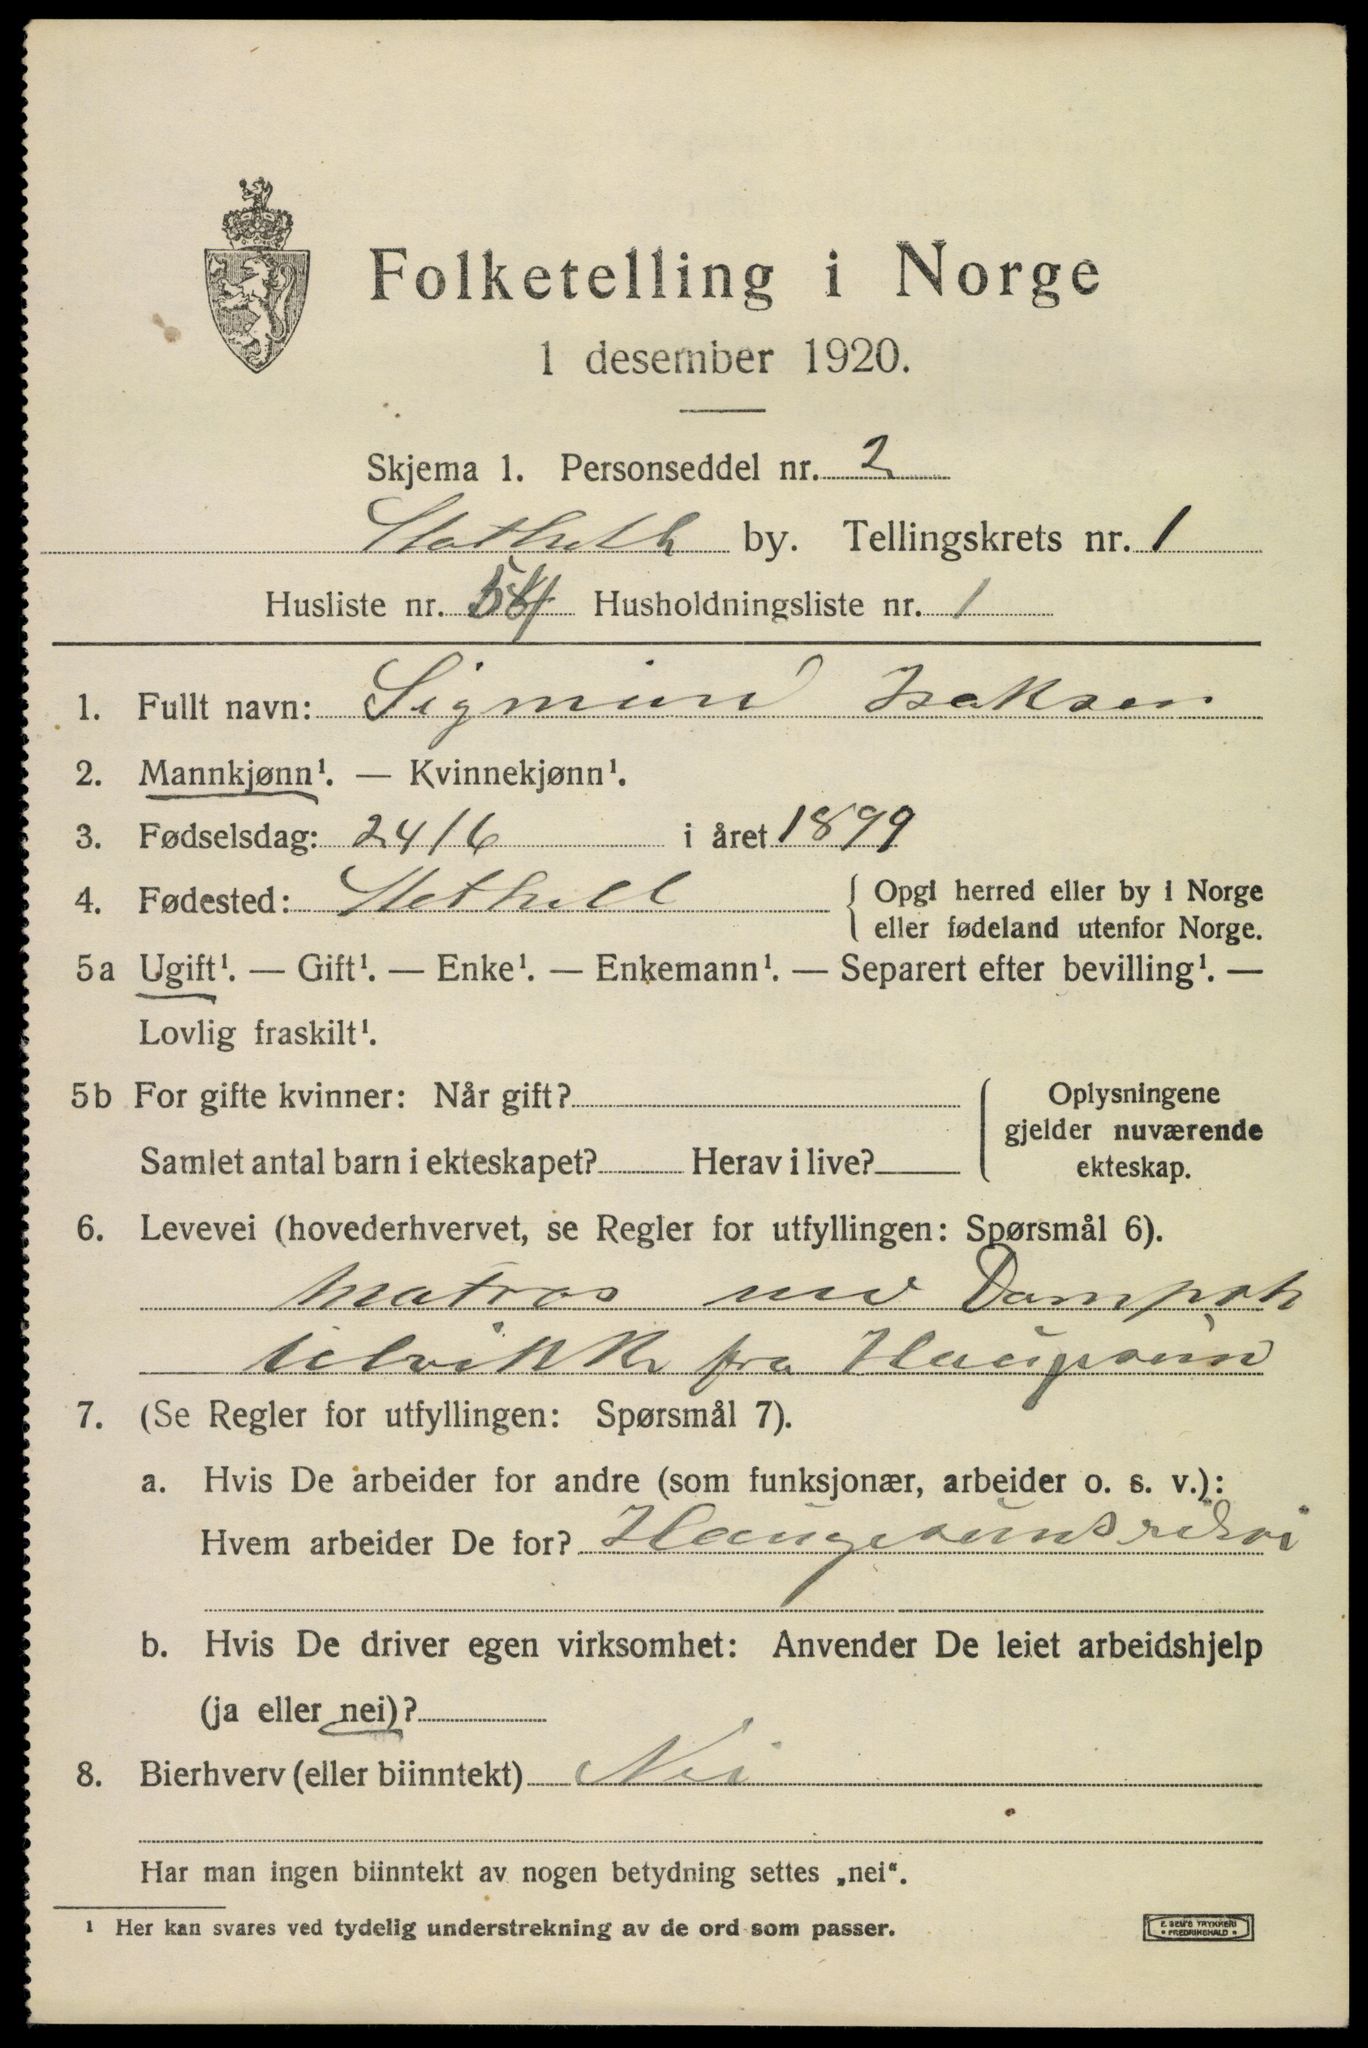 Folketelling i Norge
1 desember 1920.
Skjema 1. Personseddel nr. 2
Stathelle by. Tellingskrets nr. 1
Husliste nr. Husholdningsliste nr. 1
1. Fullt navn: Sigmund Isaksen
2. Mannkjønn¹. — Kvinnekjønn¹.
3. Fødselsdag: 24/6 i året 1899
4. Fødested: Stathell { Opgi herred eller by i Norge
eller fødeland utenfor Norge.
5a Ugift¹. — Gift¹. — Enke¹. — Enkemann¹. — Separert efter bevilling¹. —
Lovlig fraskilt¹.
5b For gifte kvinner: Når gift? { Oplysningene
gjelder nuværende
Samlet antal barn i ekteskapet? Herav i live? ekteskap.
6. Levevei (hovederhvervet, se Regler for utfyllingen: Spørsmål 6).
Matros med Dampsk
fra Haugesun
7. (Se Regler for utfyllingen: Spørsmål 7).
a. Hvis De arbeider for andre (som funksjonær, arbeider o. s. v.):
Hvem arbeider De for? Haugesunds
b. Hvis De driver egen virksomhet: Anvender De leiet arbeidshjelp
(ja eller nei)?
8. Bierhverv (eller biinntekt) Nei
Har man ingen biinntekt av nogen betydning settes „nei“.
¹ Her kan svares ved tydelig understrekning av de ord som passer.
E. SEM'S TRYKKERI
• FREDRIKSHALD •